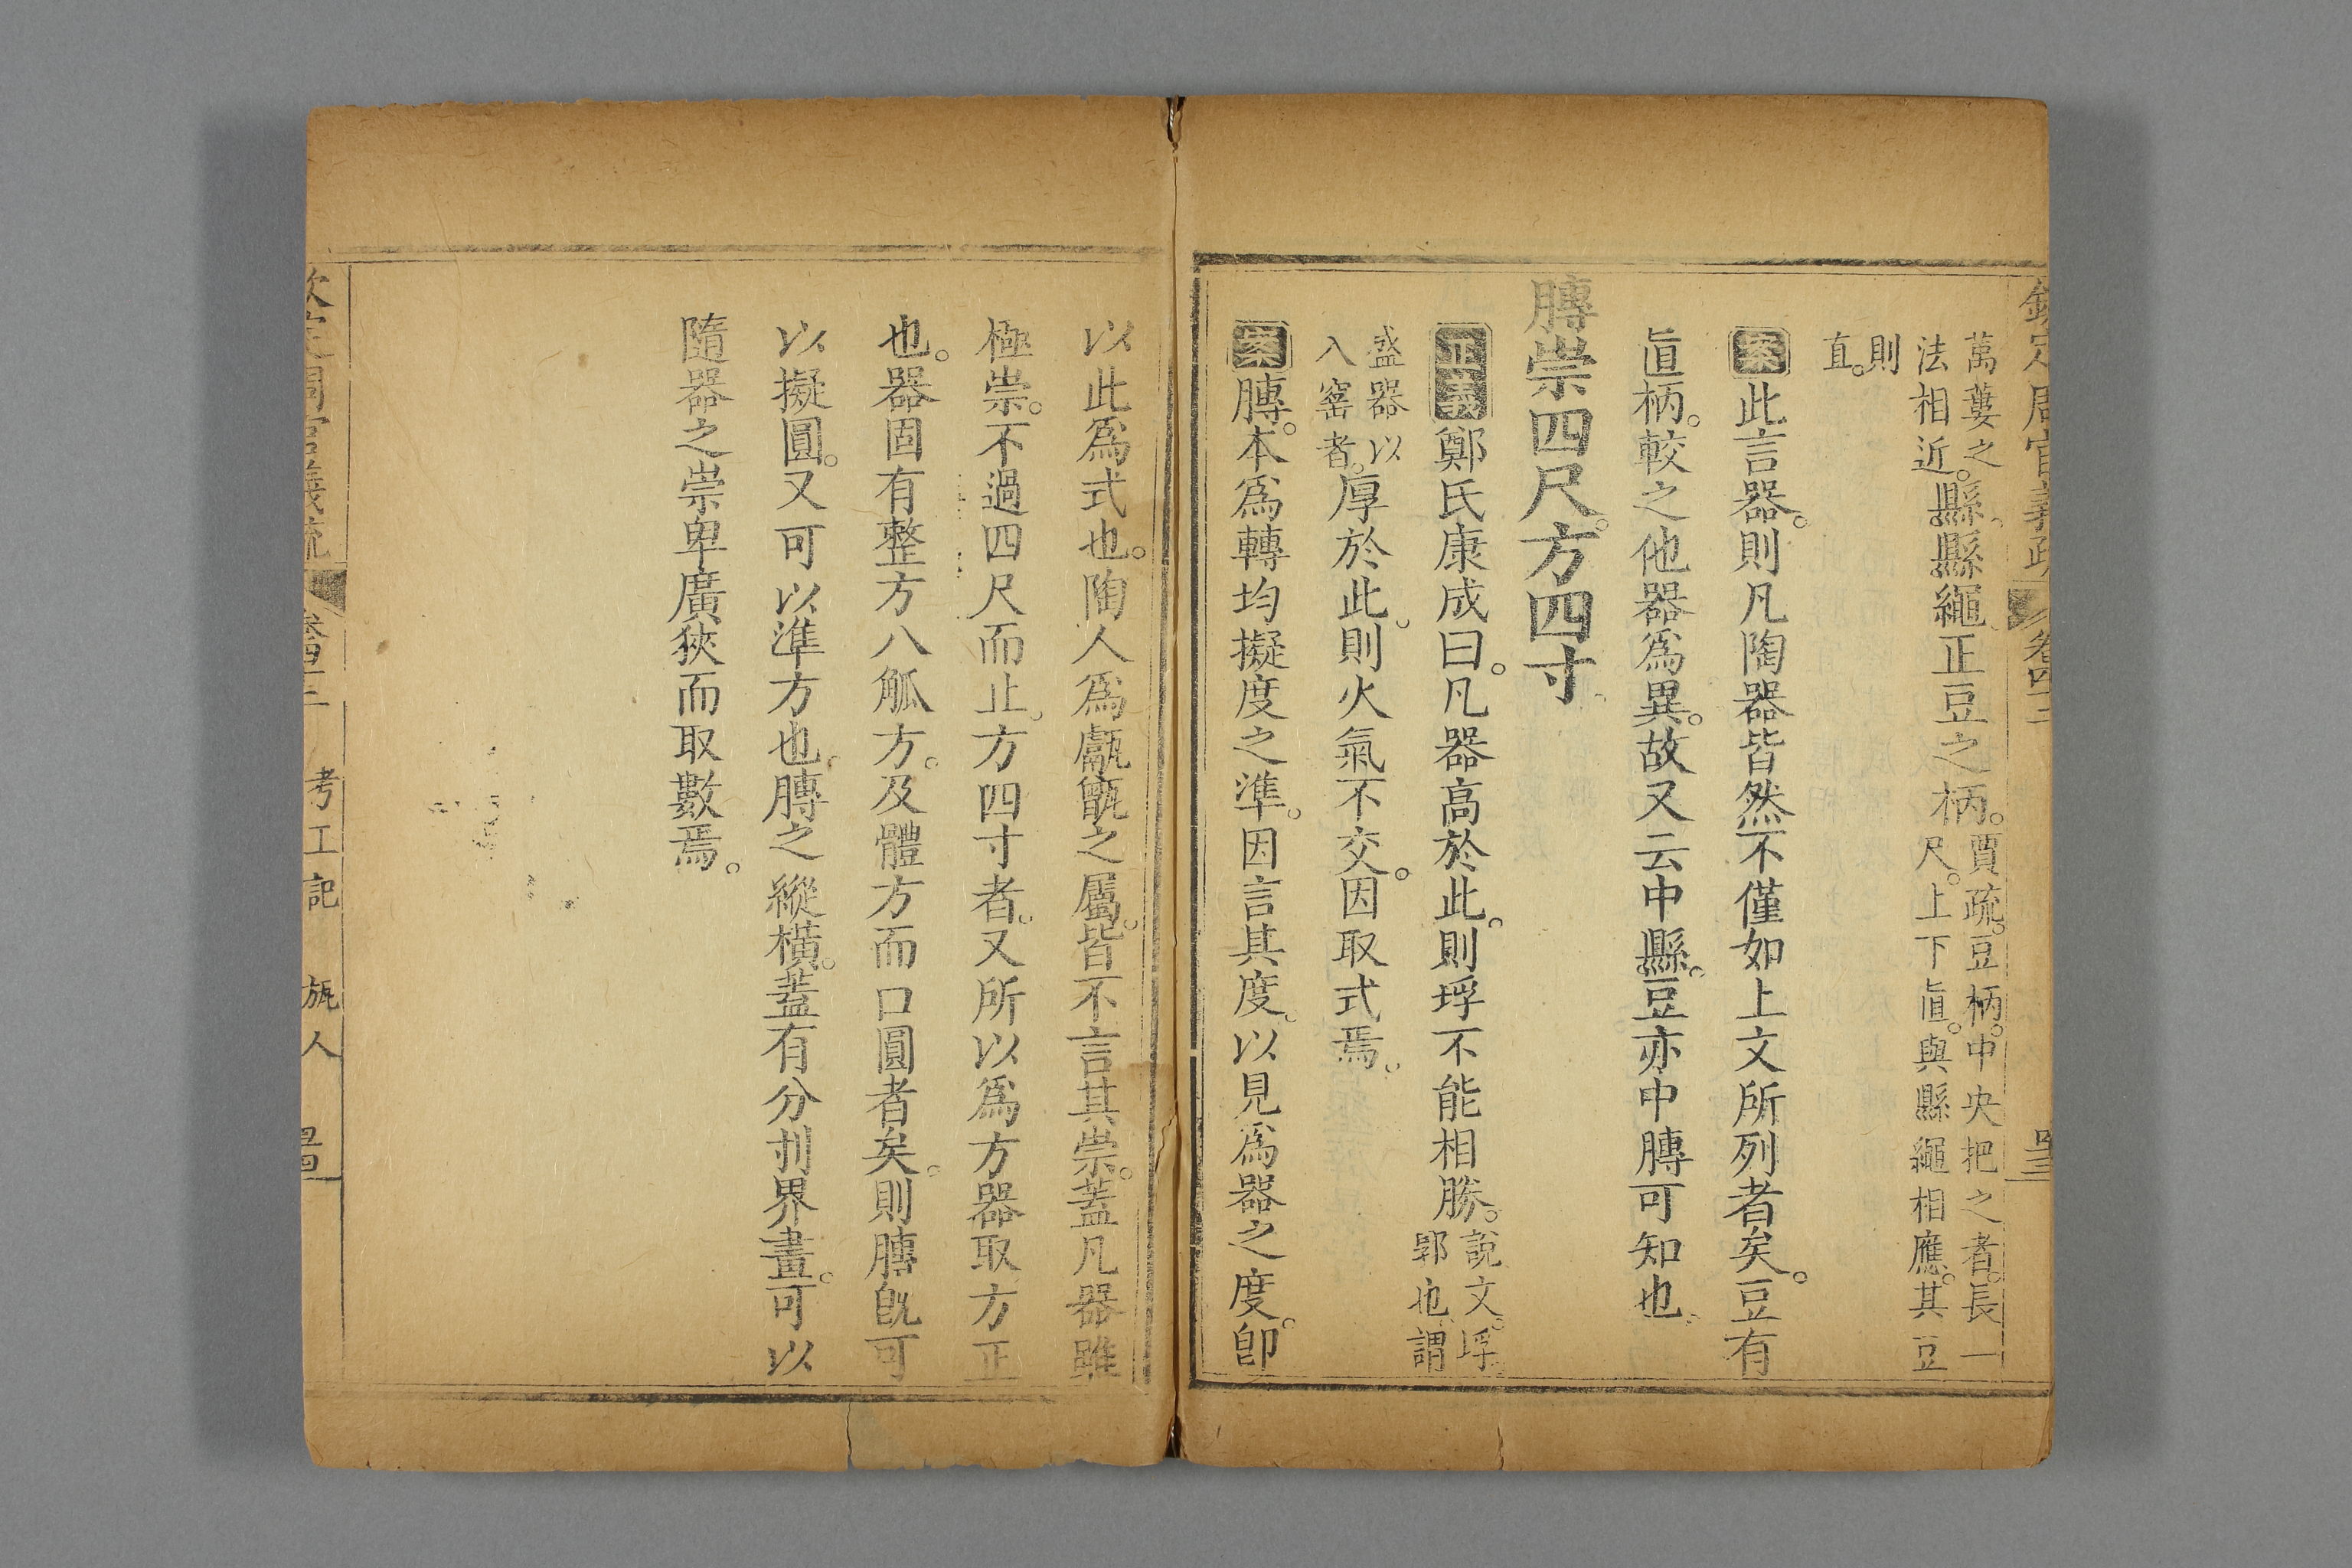 欽定周官義疏 卷四十二
萬蔞之
法相近。縣縣繩正豆之柄。賈疏。豆柄。中央把之者。長一
尺。上下直。與縣繩相應。其豆
則
直。
案此言器。則凡陶器皆然不僅如上文所列者矣。豆有
直柄。較之他器爲異。故又云中縣。豆亦中膊可知也。
膊崇四尺。方四寸。
正義鄭氏康成曰。凡器高於此。則垺不能相勝。說文。垺。
郭也。謂
盛器以
入窰者。厚於此。則火氣不交。因取式焉。
案膊。本爲轉均擬度之準。因言其度。以見爲器之度。卽
以此爲式也。陶人爲甗甑之屬。皆不言其崇。蓋凡器雖
極崇。不過四尺而止。方四寸者。又所以爲方器取方正
也。器固有整方八觚方。及體方而口圓者矣。則膊旣可
以擬圓。又可以準方也。膊之縱橫。蓋有分刌界畫。可以
隨器之崇卑廣狹而取數焉。
欽定周官義疏 卷四十二 考工記 瓬人